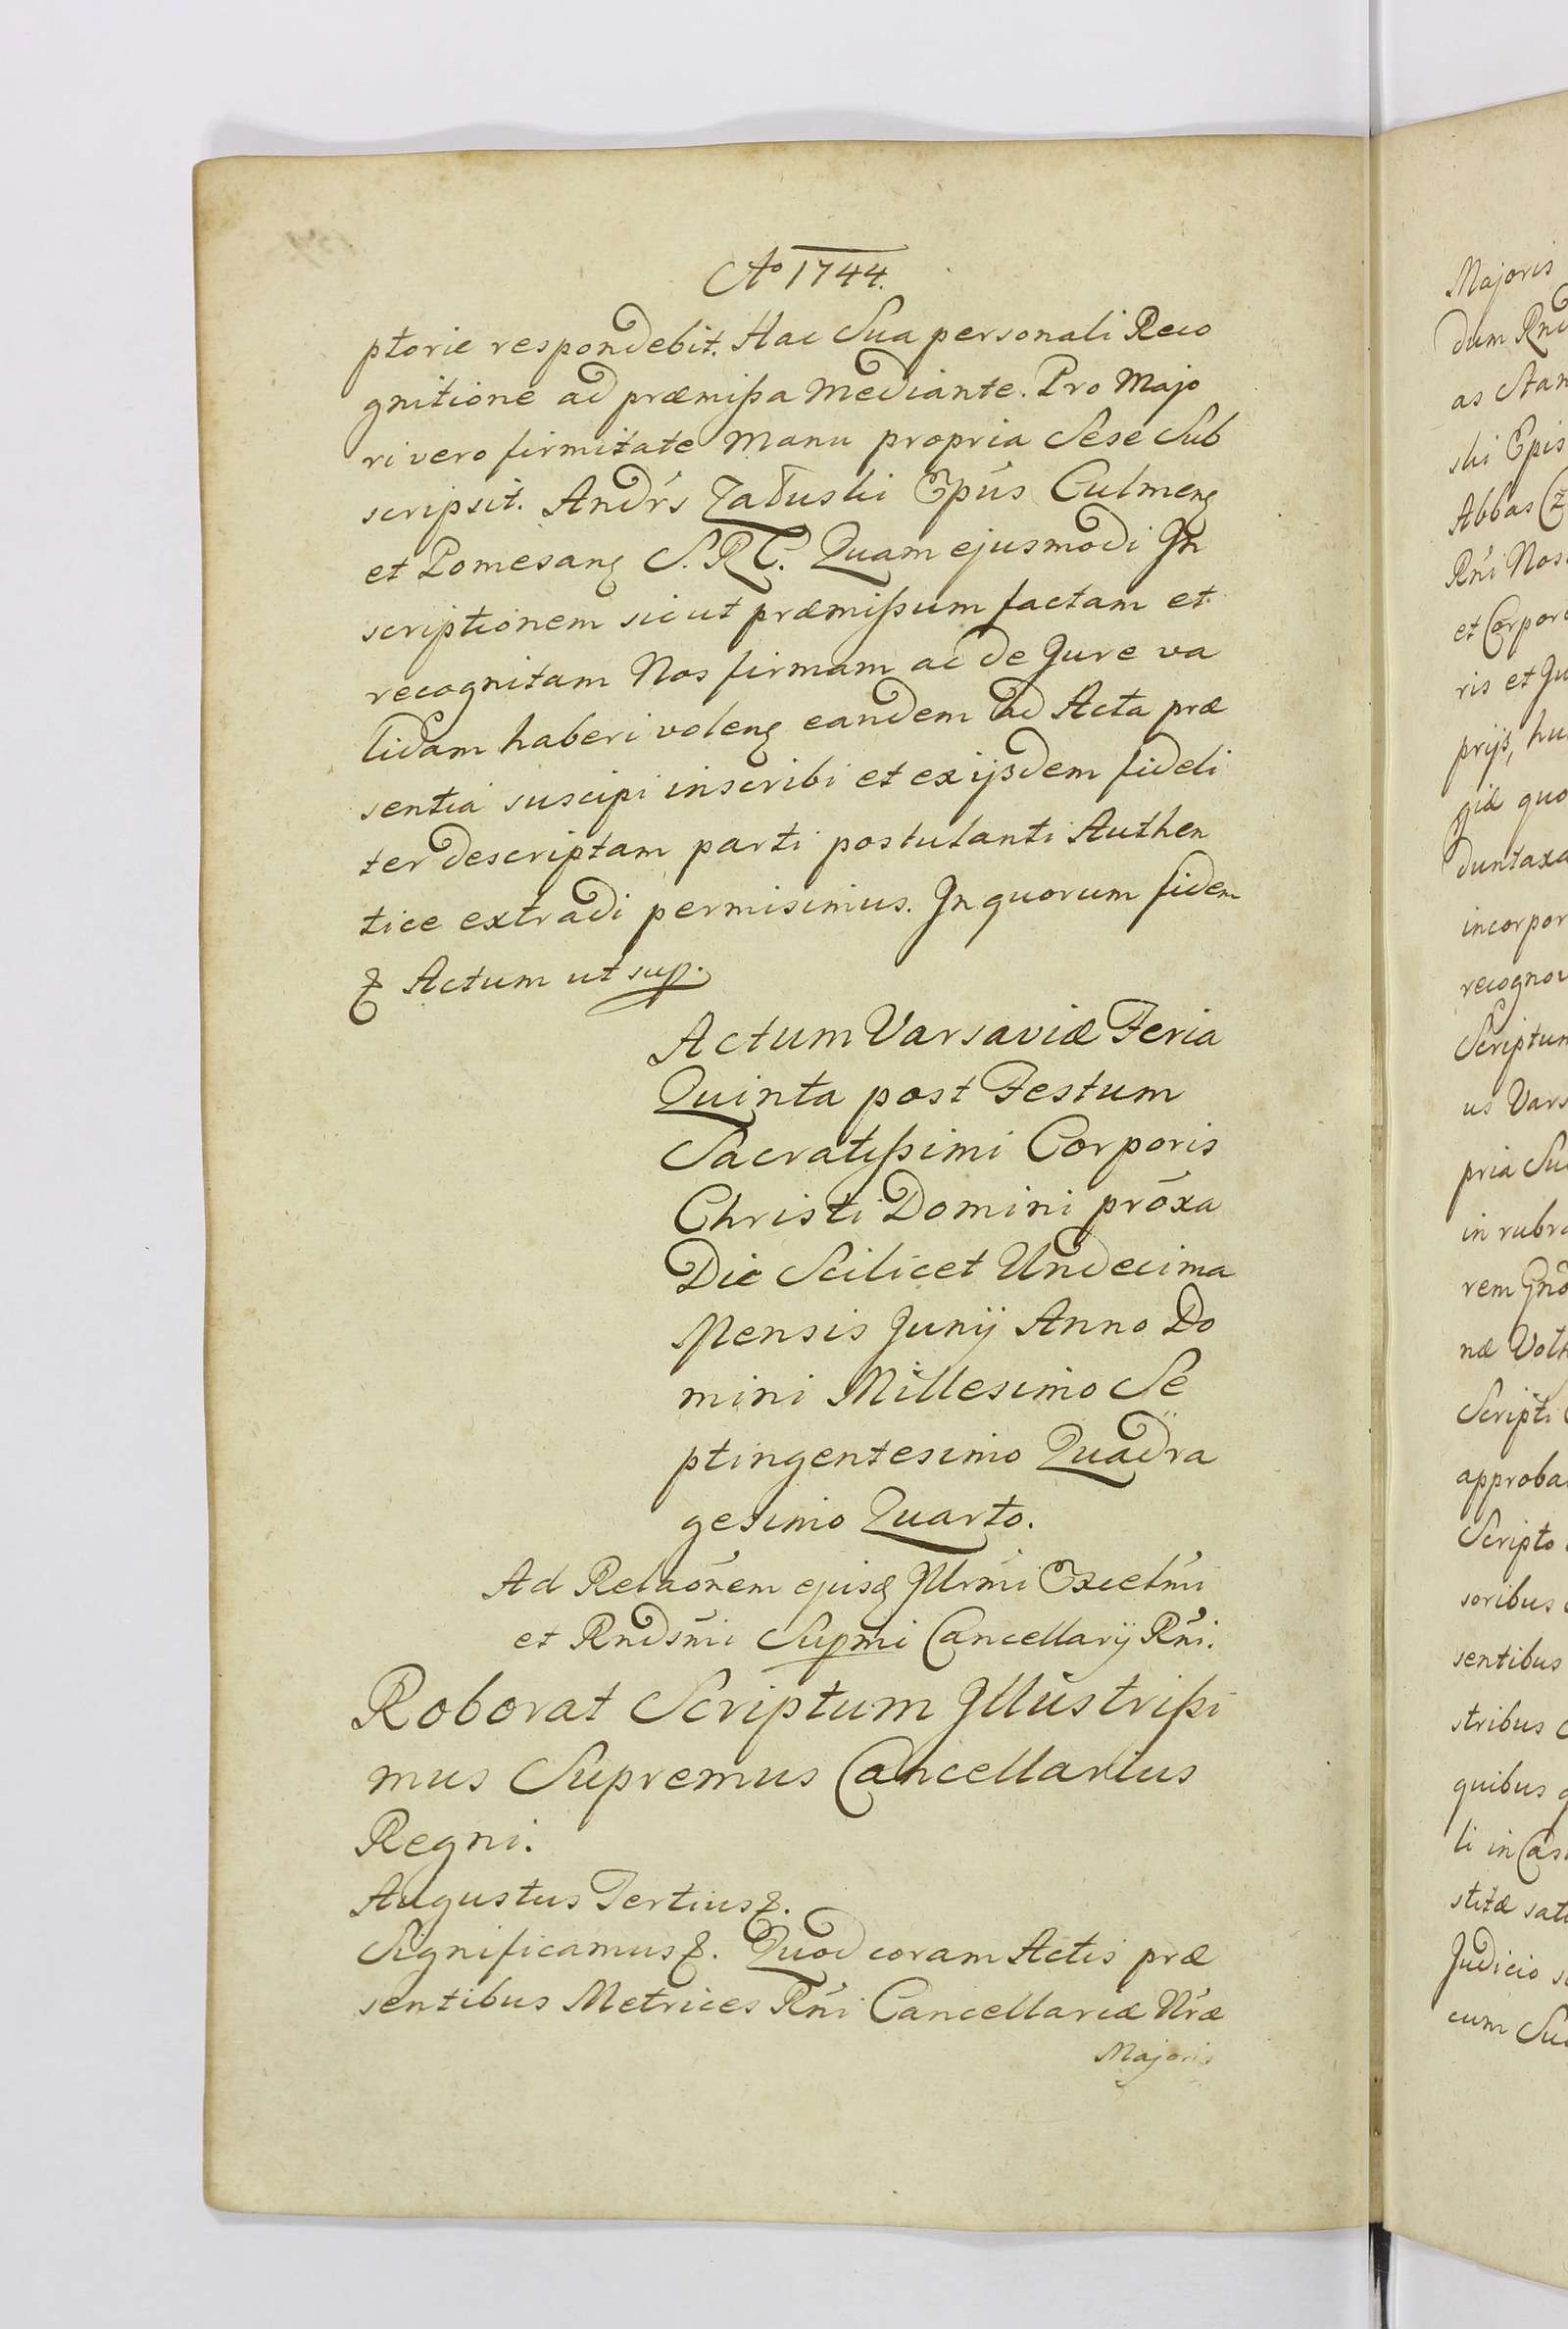 Ao 1744.
ptorie respondebit. Hac Sua personali Reco
gnitione ad præmißa mediante. Pro Majo
ri vero firmitate manu propria Sese Sub
scripsit. Andrs Załuski Epus Culmens
et Pomesans S.R.C. Quam ejusmodi In
scriptionem sicut præmißum factam et
recognitam Nos firmam ac de Jure va
lidam haberi volens eandem ad Acta præ
sentia suscipi inscribi et ex ijsdem fideli
ter descriptam parti postulanti Authen
tice extradi permisimus. In quorum fidem
& Actum ut sup.
Actum Varsaviæ Feria
Quinta post Festum
Sacratißimi Corporis
Christi Domini proxa
Die Scilicet Undecima
Mensis Junij Anno Do
mini Millesimo Se
ptingentesimo Quadra
gesimo Quarto.
Ad Relaonem ejusq Illrmi Excelmi
et Rndsmi Supmi Cancellarij Rni.
Roborat Scriptum Illustrißi
mus Supremus Cancellarius
Regni.
Augustus Tertius &.
Significamus &. Quod coram Actis præ
sentibus Metrices Rni Cancellariæ Nræ
Majoris
Majoris
dum Rnd
as Stan
ski Epis
Abbas
Rni Nos
et Corpor
ris et Ju
prijs, hu
giæ quo
duntaxa
incorpor
recognov
Scriptum
us Vars
pria Su
in rubro
rem Gnd
næ Volh
Scripti
approba
Scripto
soribus
sentibus
stribus
quibus
li in Cas
stitæ sati
Judicio
cum Su